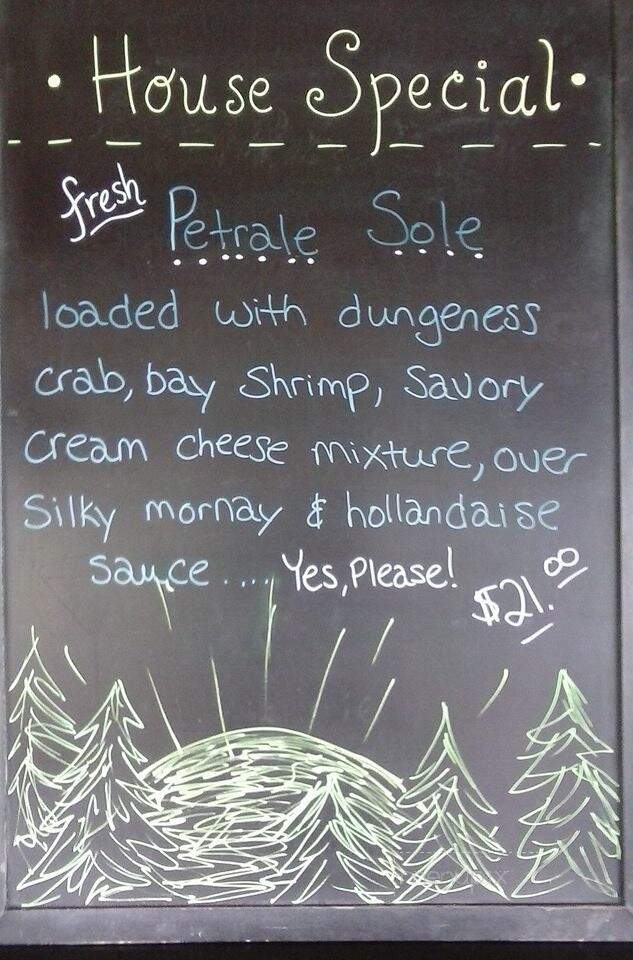 · House Special ·
fresh Petrale Sole
loaded with dungeness
crab, bay Shrimp, Savory
cream cheese mixture, over
Silky mornay & hollandaise
sauce ..... Yes, Please!
$21.00